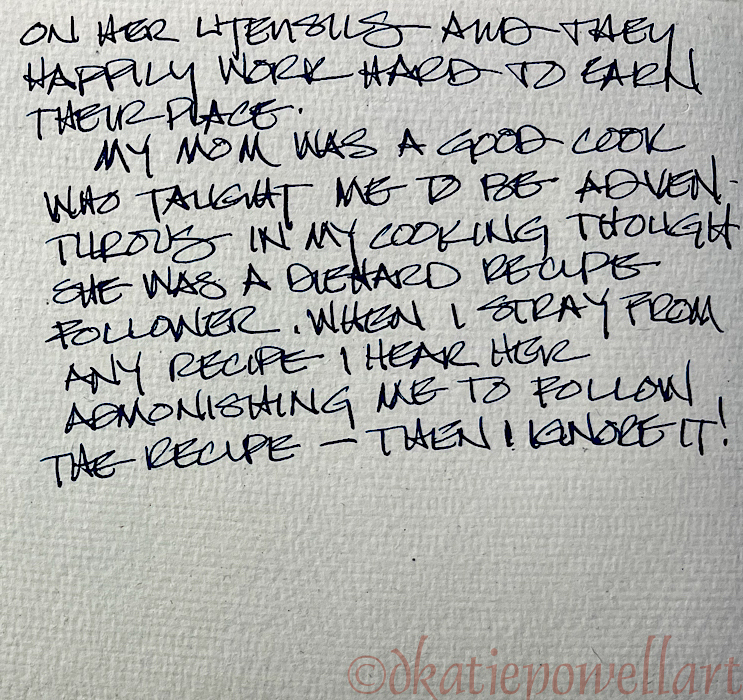 ON HER UTENSILS AND THEY
HAPPILY WORK HARD TO EARN
THEIR PLACE.
MY MOM WAS A GOOD COOK
WHO TAUGHT ME TO BE ADVEN-
TUROUS IN MY COOKING THOUGH
SHE WAS A DIEHARD RECIPE
FOLLOWER. WHEN I STRAY FROM
ANY RECIPE I HEAR HER
ADMONISHING ME TO FOLLOW
THE RECIPE — THEN I IGNORE IT!
©dkatiepowellart